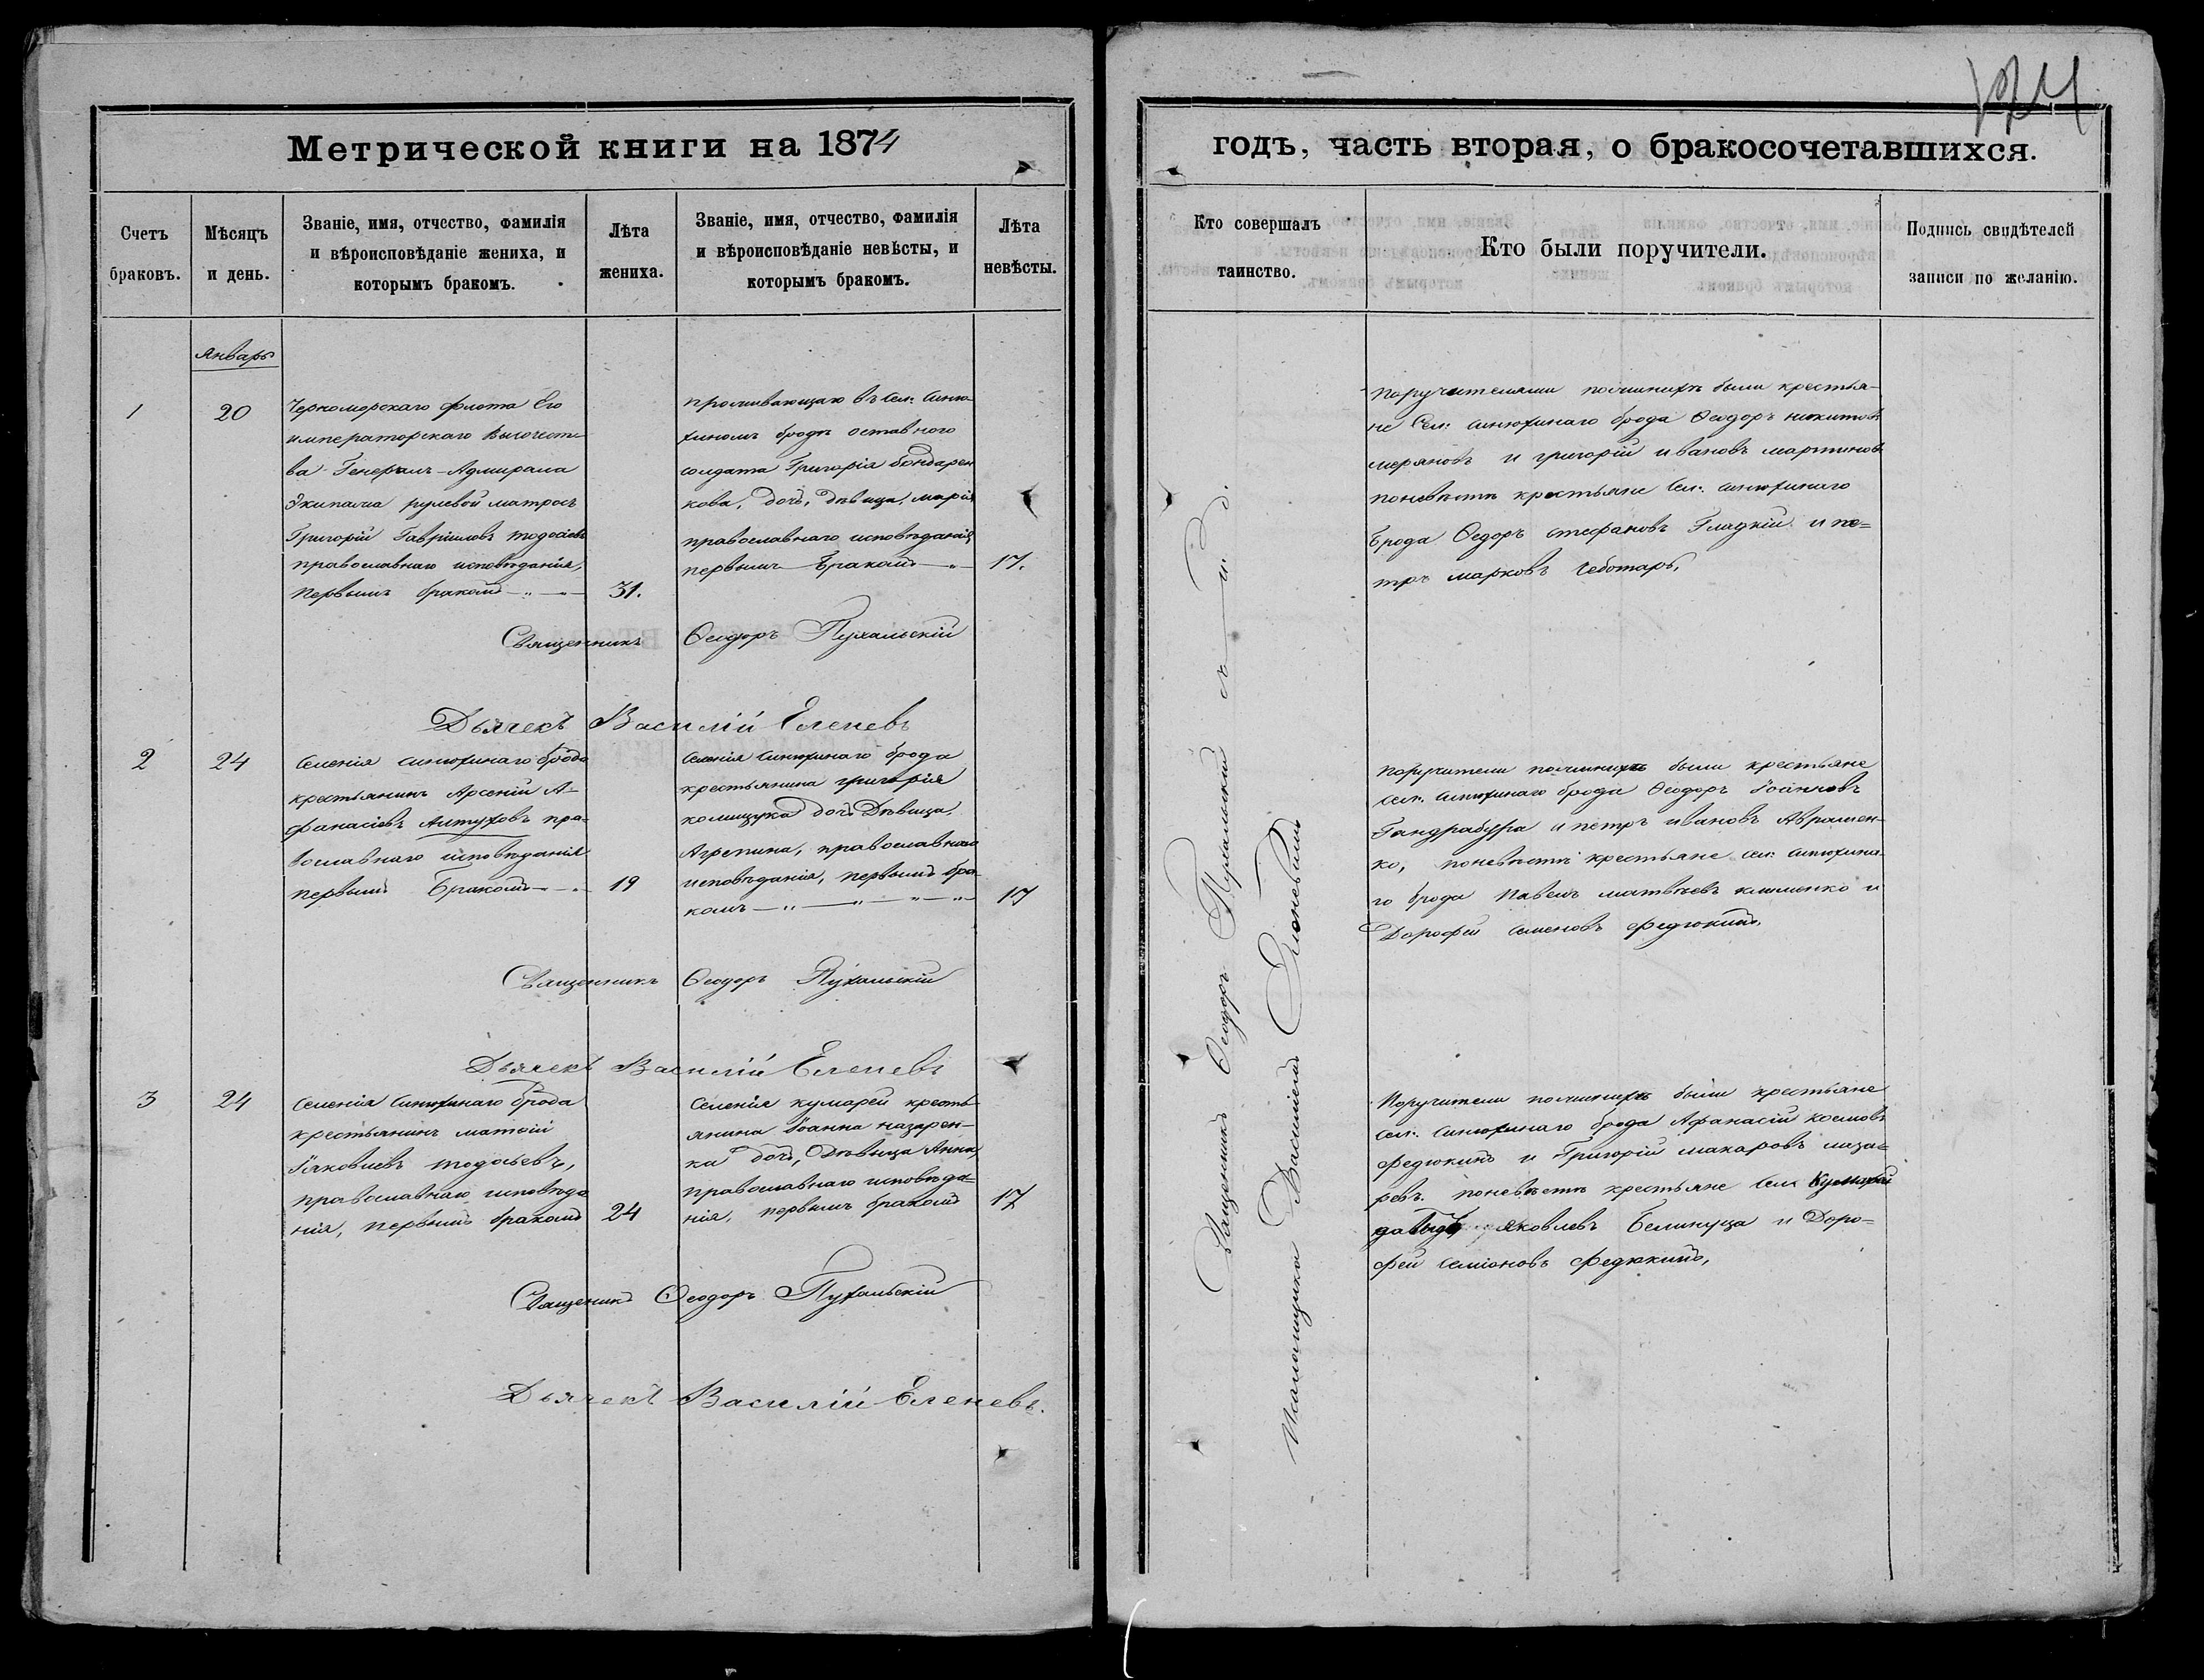 Метрической книги на 1874
Счетъ браковъ.
Мѣсяцъ и день.
Званіе, имя, отчество, фамилія
и вѣроисповѣданіе жениха, и
которымъ бракомъ.
Лѣта жениха.
Званіе, имя, отчество, фамилія
и вѣроисповѣданіе невѣсты, и
которымъ бракомъ.
Лѣта невѣсты.
Январь
1
20
Черноморскаго флота Его
императорскаго Высочест
ва Генералъ-Адмирала
Экипажа рулевой матросъ
Григорій Гавріиловъ Тодосіевъ
православнаго исповѣданія,
первымъ бракомъ
31.
проживающаго въ Сел: Синю-
хиномъ бродѣ оставного
солдата Григорія Бондарен
кова, дочь, дѣвица, Марія
православнаго исповѣданія
первымъ Бракомъ
17.
Священникъ Ѳеодоръ Пухальскій
Дьячекъ Василій Еленевъ
2
24
Селенія Синюхинаго брода
крестьянинъ Арсеній А-
фанасіевъ Алтуховъ пра-
вославнаго исповѣданія
первымъ Бракомъ
19
Селенія Синюхинаго брода
крестьянина григорія
колищука дочь Дѣвица,
Агрепина, православнаго
исповѣданія, первымъ бра-
комъ
17
Священникъ Ѳеодоръ Пухальскій
Дьячекъ Василій Еленевъ
3
24
Селенія Синюхинаго брода
крестьянинъ матѳій
Іяковлевъ тодосьевъ,
православнаго исповѣда
нія, первымъ бракомъ
24
Селенія кумарей кресть-
янина Іоанна назарен-
ка дочь, Дѣвица Анна,
православнаго исповѣда-
нія, первымъ бракомъ
17
Священикъ Ѳеодоръ Пухальскій
Дьячекъ Василій Еленевъ.
годъ, часть вторая, о бракосочетавшихся.
Кто совершалъ таинство.
Кто были поручители.
Подпись свидѣтелей
записи по желанію.
Священникъ Ѳеодоръ Пухальскій съ
Псаломщикомъ Василіемъ Еленевымъ
Поручителями поженихѣ были крестья-
не Сел: Синюхинаго брода Ѳеодоръ никитовъ
меряновъ и григорій ивановъ мартиновъ
поневѣстѣ крестьяне Сел: синюхинаго
Брода Ѳедоръ стефановъ Гладкій и пе-
тръ марковъ Чеботарь,
Поручители поженихѣ были крестьяне
Сел: Синюхинаго брода Ѳеодоръ Іоанновъ
Гандрабура и петръ ивановъ Авраmен-
ко, поневѣстѣ крестьяне Сел: Синюхина-
го брода Павелъ матвѣевъ клименко и
Дорофей Семеновъ Федюкинъ,
Поручители поженихѣ были крестьяне
Сел: Синюхинаго брода Афанасій космовъ
Федюкинъ и Григорій макаровъ лаза-
ревъ. поневѣстѣ крестьяне Сел: Кумарей
давыдъ яковлевъ Белинуца и Доро-
фей Семіоновъ Федюкинъ,